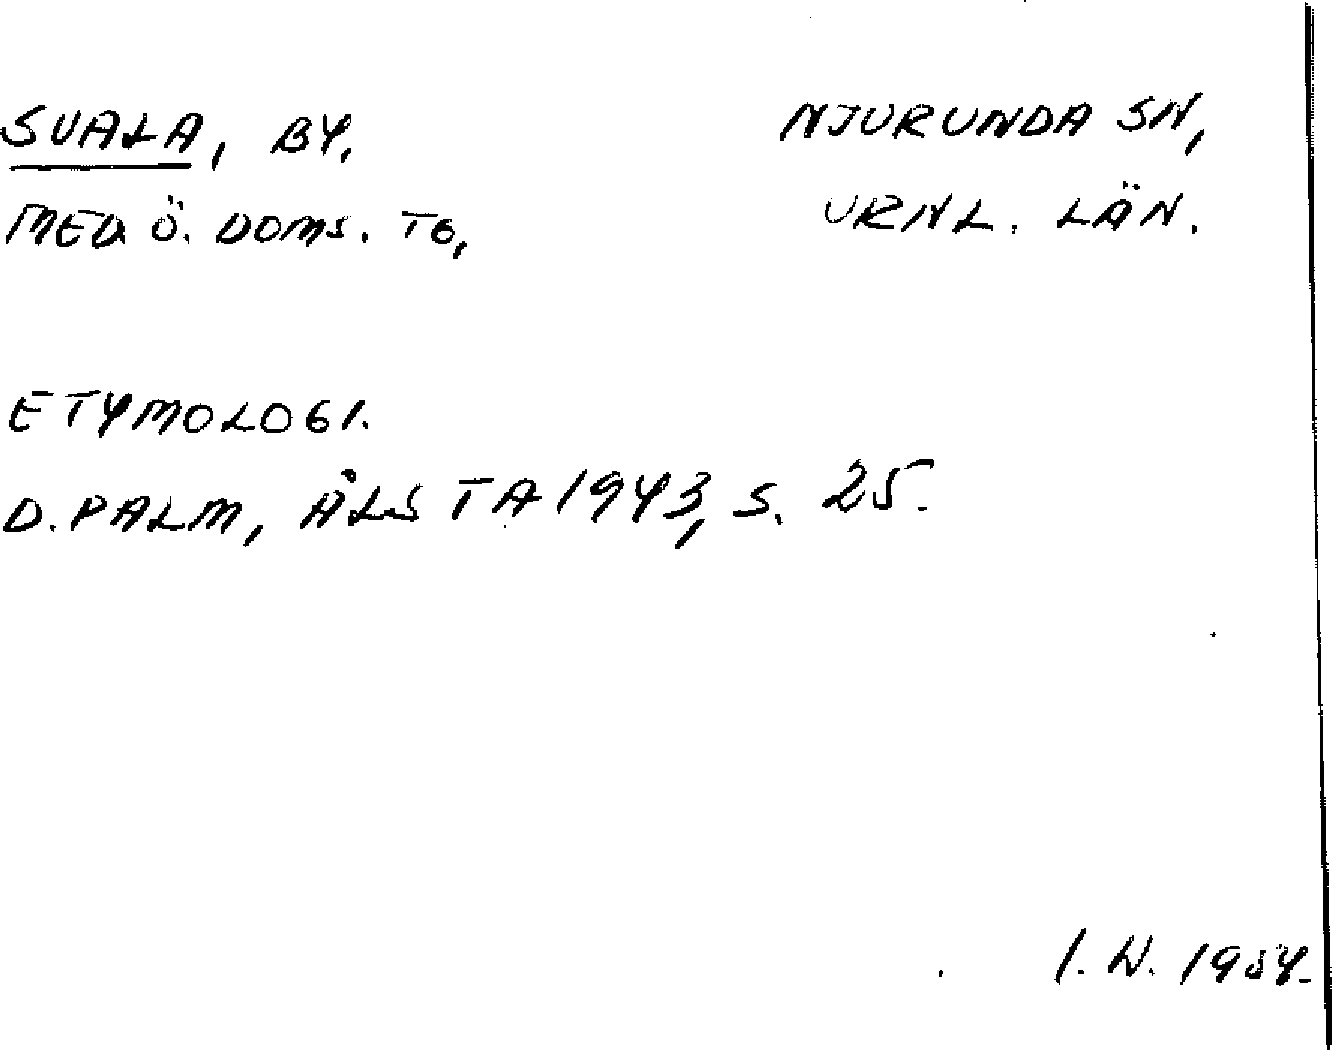 SVALA, BY. NJURUNDA SN,
MED. Ö. DOMS. TG, VRNL. LÄN.
ETYMOLOGI.
D. PALM, ÅLSTA 1943, S. 25.
I. W. 1954.